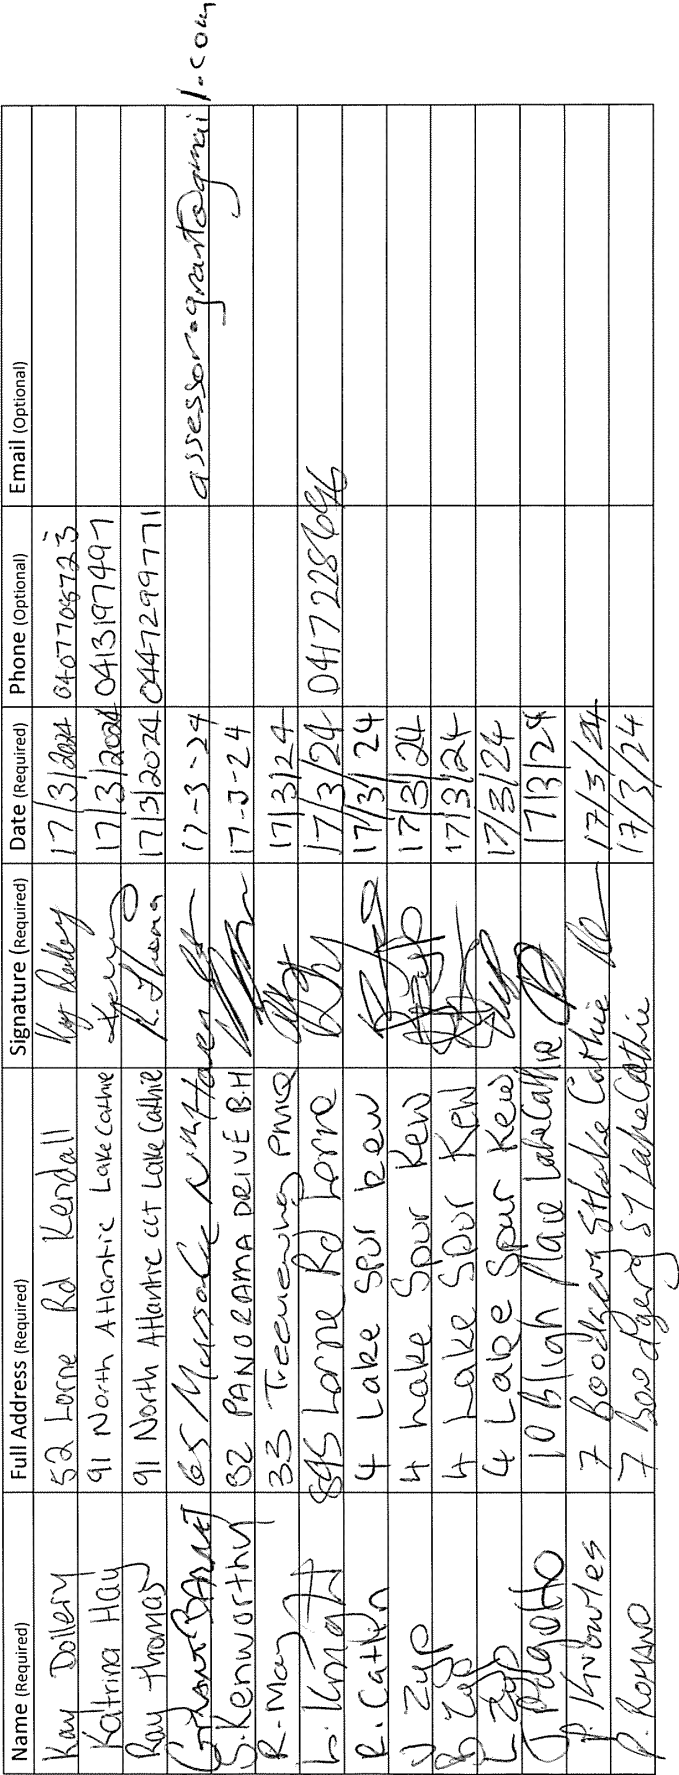 Name (Required) Full Address (Required) Signature (Required) Date (Required) Phone (Optional) Email (Optional)
Kay Dollery 52 Lorne Rd Kendall 17/3/2024 0407708723
Katrina Hay 91 North Atlantic Lake Cathie 17/3/2024 0413197497
Ray Thomas 91 North Atlantic cct Lake Cathie R. Thomas 17/3/2024 0447299771
Grant BARNET 65 Nth Haven 17-3-24 assessoragranta@gmail.com
S. Kenworthy 82 PANORAMA DRIVE B.H 17-3-24
R. May 33 Treeview way PMQ 17/3/24
L. Knight 895 Lorne Rd Lorne 17/3/24 0417228696
R. Catlin 4 Lake Spur Kew 17/3/24
J Zyp 4 Lake Spur Kew 17/3/24
B Zyp 4 Lake Spur Kew 17/3/24
L Zyp 4 Lake Spur Kew 17/3/24
10 Bligh Place Lake Cathie 17/3/24
P. Knowles 7 Boodgery St Lake Cathie 17/3/24
P. ROMANO 7 Boodgery St Lake Cathie 17/3/24